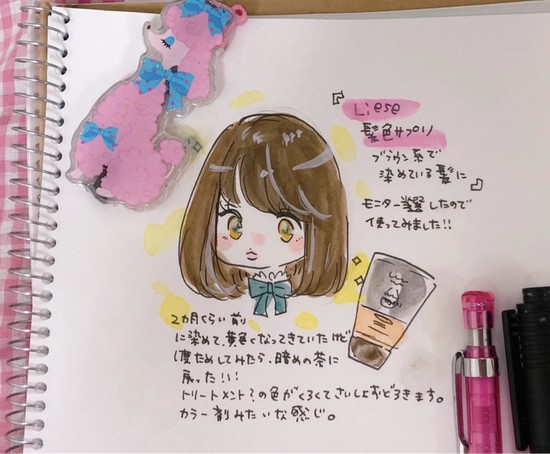 『Liese
髪色サプリ
ブラウン系で
染めている髮に』
モニター当選したので
使ってみました!!
2ヵ月くらい前
に染めて、黄色くなってきていたけど
1度ためしてみたら、暗めの茶に
戻った!!
トリートメント?の色がくろくてさいしょおどろきます。
カラー剤みたいな感じ。